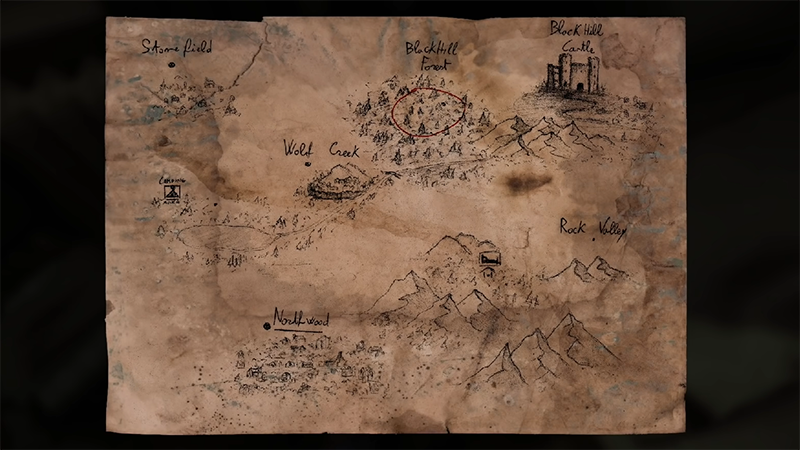 Stonefield
BlackHill
Forest
BlackHill
Castle
Wolf Creek
Camping
Area
Rock Valley
Northwood